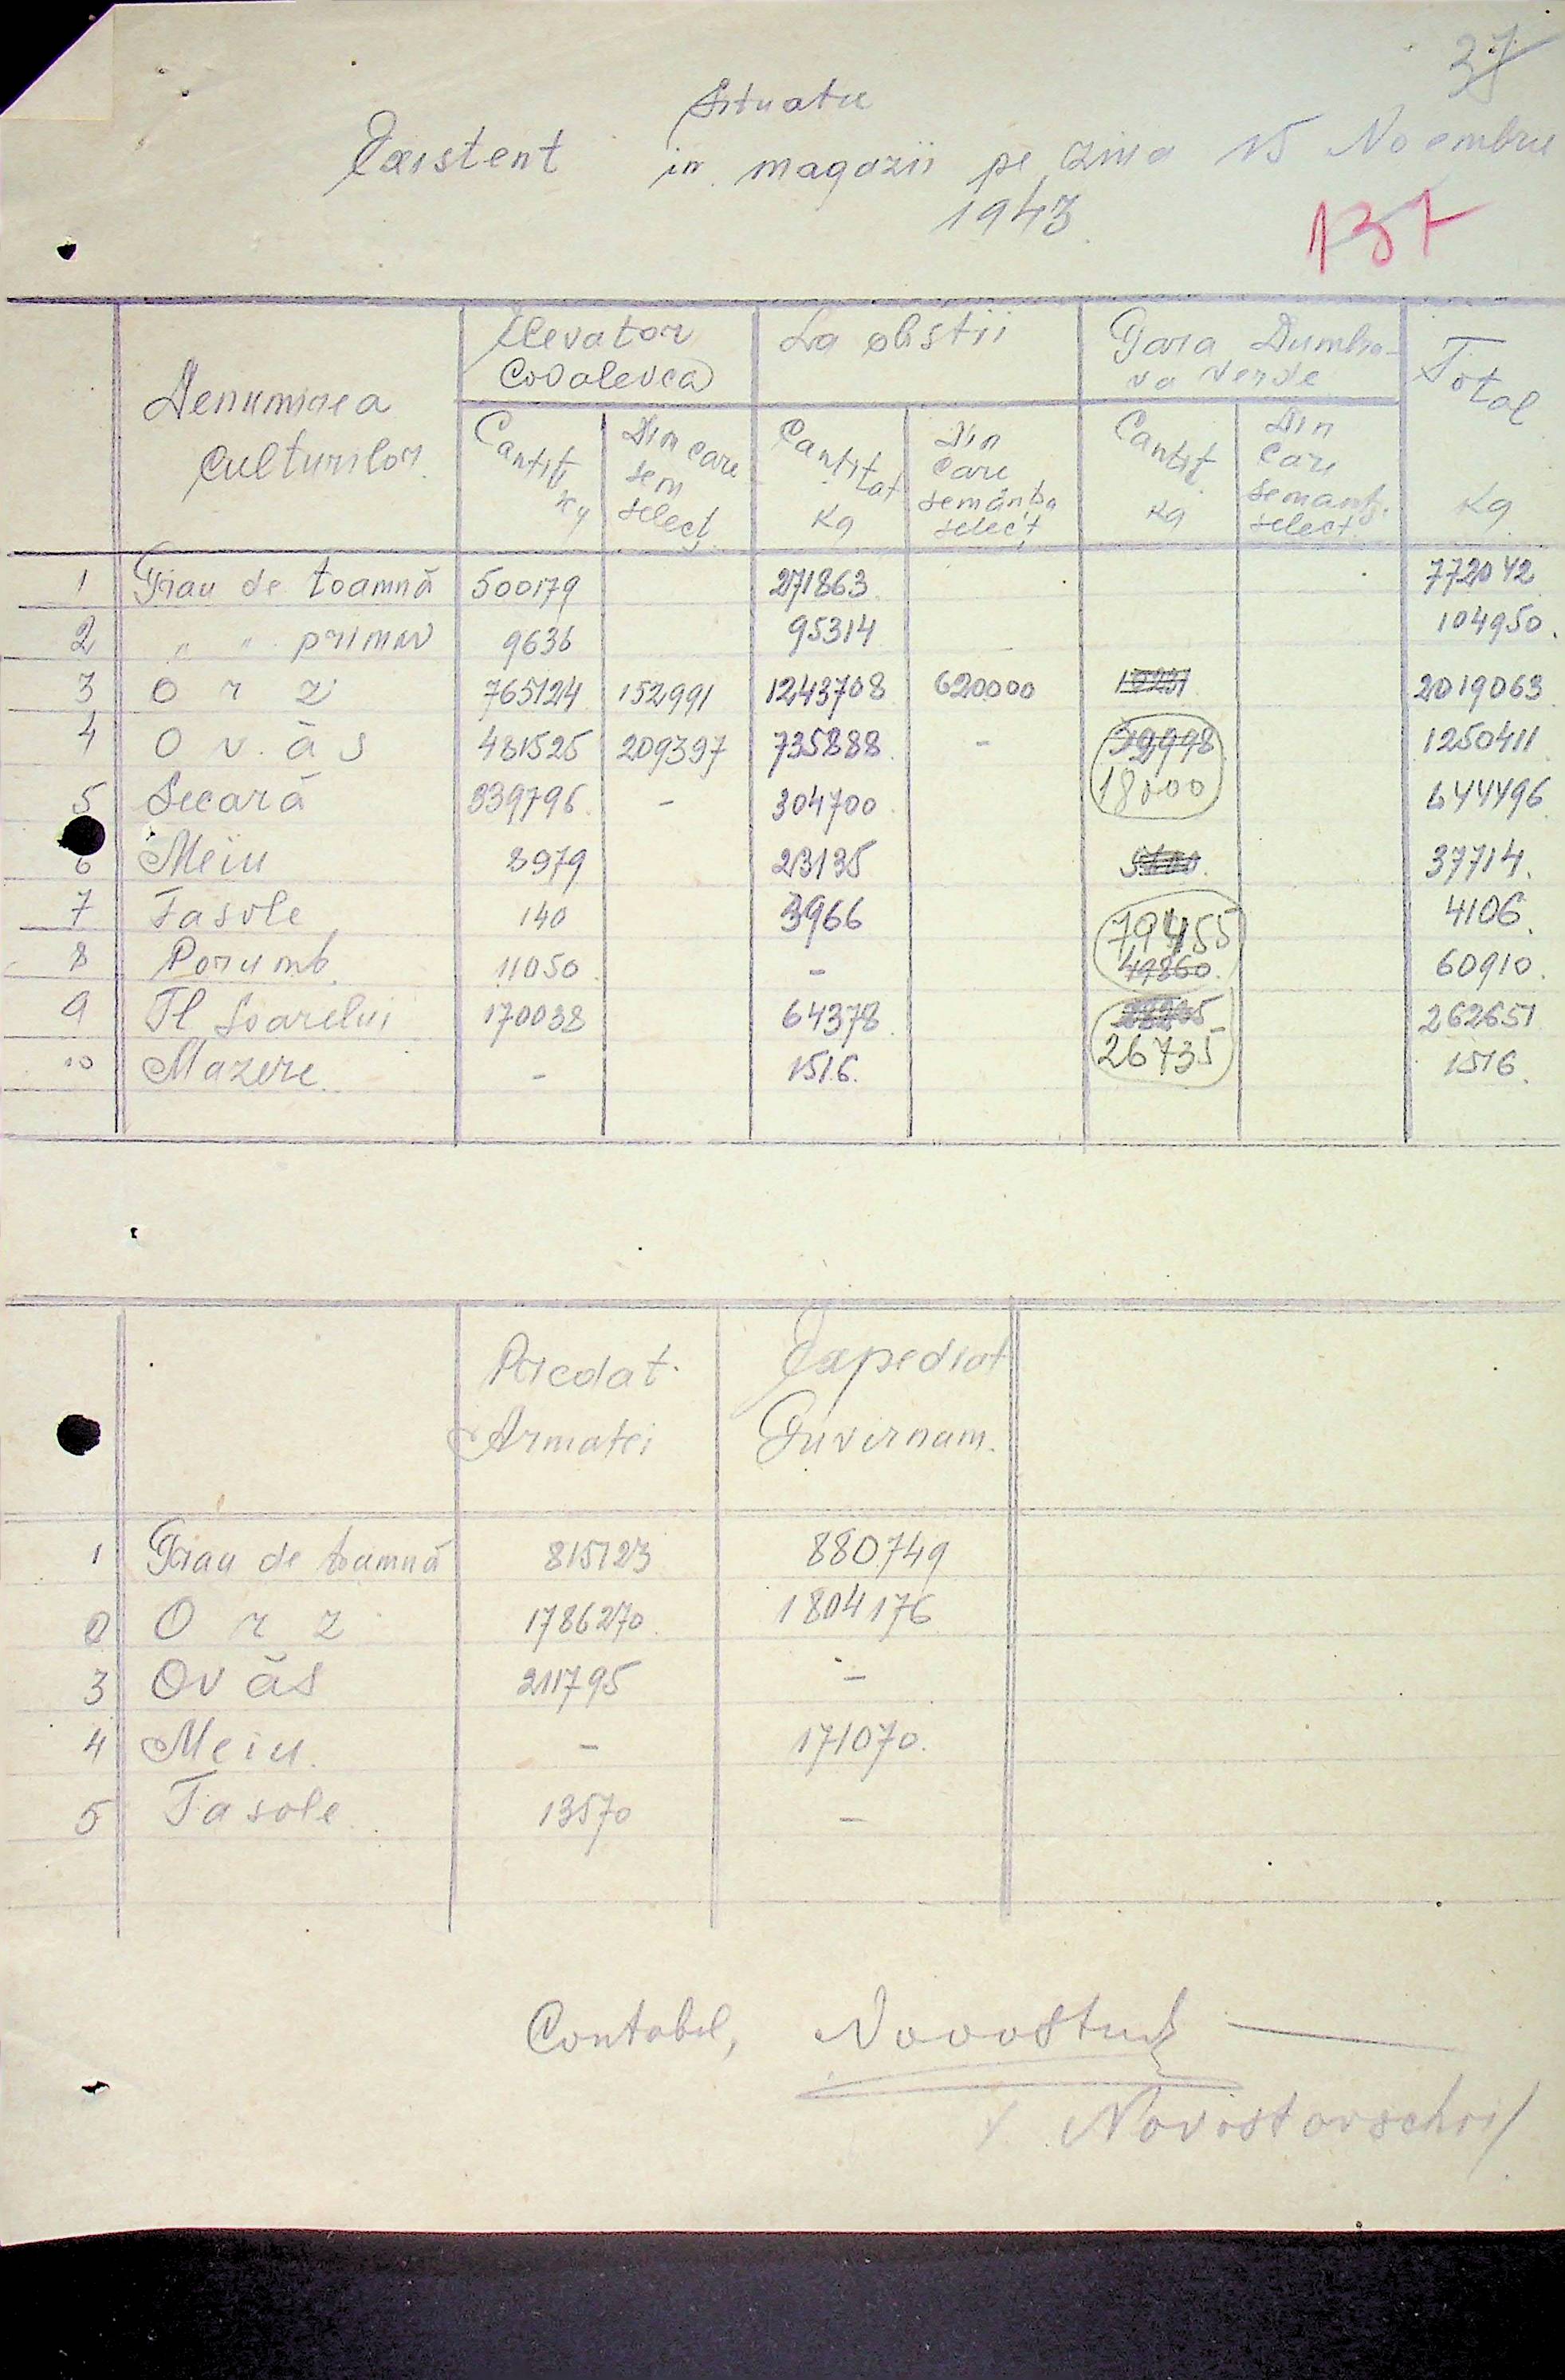 37
Situatie
Existent in magazii pe ziua 15 Noembrie
1943
137
Denumirea culturilor | Elevator Covalevca | La obstii | Gara Dumbra-va Verde | Total Kg
Cantit kg | Din care sem select | Cantitat Kg | Din care semânța select | Cantit Kg | Din care semanț. select
1 Grau de toamnă 500179 271863 772042
2 " " primav 9636 95314 104950.
3 Orz 765124 152991 1243708 620000 2019063
4 Ovăs 481525 209397 735888 - 32998 1250411
18000
5 Secară 339796 - 304700 644496
6 Meiu 8979 23135 5600. 37714.
7 Fasole 140 3966 4106.
79455
8 Porumb 11050 - 49860. 60910.
9 Fl Soarelui 170038 64378 28235 262651
26735
10 Mazere - 1516. 1516.
Predat Armatei | Expediat Guvernam.
1 Grau de toamnă 815123 880749
2 Orz 1786270 1804176
3 Ovăs 211795 -
4 Meiu - 171070.
5 Fasole 13570 -
Contabil,